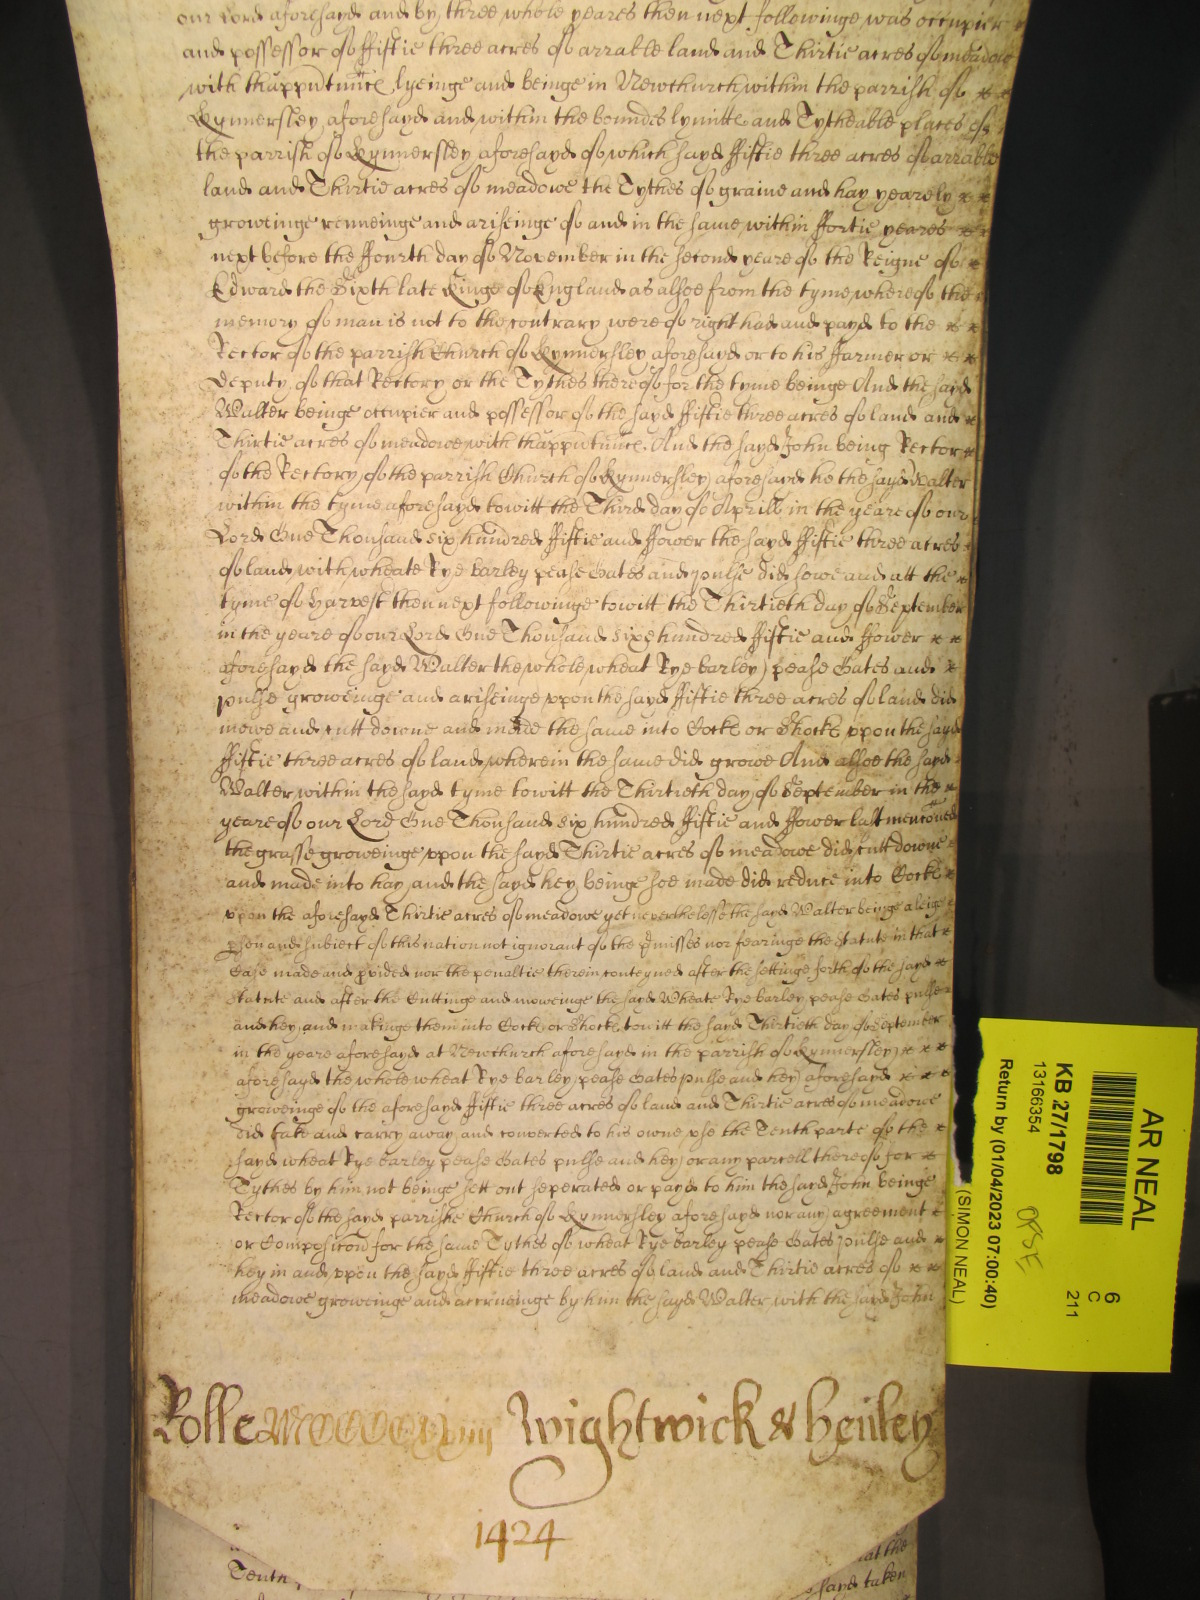 our Lord aforesayd and by three whole yeares then next followinge was occupier
and possessor of ffiftie three acres of arrable land and Thirtie acres of meadow
with thapputnnce lyeinge and beinge in Newchurch within the parrish of
Kynnersley aforesayd and within the boundes lymitte and Tytheable places of
the parrish of Kynnersley aforesayd of which sayd ffiftie three acres of arrable
land and Thirtie acres of meadowe the Tythes of graine and hay yearely
groweinge renneinge and ariseinge of and in the same within ffortie yeares
next before the ffourth day of November in the second yeare of the Reigne of
Edward the Sixth late Kinge of England as alsoe from the tyme whereof the
memory of man is not to the contrary were of right had and payd to the
Rector of the parrish Church of Kynnersley aforesayd or to his ffarmer or
Deputy of that Rectory or the Tythes thereof for the tyme beinge And the sayd
Walter beinge occupier and possessor of the sayd ffiftie three acres of land and
Thirtie acres of meadowe with thapputnnce And the sayd John being Rector
of the Rectory of the parrish Church of Kynnersley aforesayd he the sayd Walter
within the tyme aforesayd towitt the Third day of Aprill in the yeare of our
Lord One Thousand six hundred ffiftie and ffower the sayd ffiftie three acres
of land with wheate Rye barley pease Oates and pulse did sowe and att the
tyme of Harvest then next followinge towitt the Thirtieth day of September
in the yeare of our Lord One Thousand sixe hundred ffiftie and ffower
aforesayd the sayd Walter the whole wheat Rye barley pease Oates and
pulse groweinge and ariseinge vpon the sayd ffiftie three acres of land did
mowe and cutt downe and made the same into Cocke or Shocke vpon the sayd
ffiftie three acres of land wherein the same did growe And alsoe the sayd
Walter within the sayd tyme towitt the Thirtieth day of September in the
yeare of our Lord One Thousand six hundred ffiftie and ffower last menconed
the grasse groweinge vpon the sayd Thirtie acres of meadowe did cutt downe
and made into hay and the sayd hey beinge soe made did reduce into Cocke
vpon the aforesayd Thirtie acres of meadowe yet neverthelesse the sayd Walter beinge a leige
pson and subiect of this nation not ignorant of the pmisses nor fearinge the statute in that
Case made and pvided nor the penaltie therein conteyned after the settinge forth of the sayd
statute and after the Cuttinge and moweinge the sayd Wheate Rye barley pease Oates pulse
and hey and makinge them into Cocke or Shocke towitt the sayd Thirtieth day of September
in the yeare aforesayd at Newchurch aforesayd in the parrish of Kynnersley
aforesayd the whole wheat Rye barley pease Oates pulse and hey aforesayd
groweinge of the aforesayd ffiftie three acres of land and Thirtie acres of meadowe
did take and carry away and converted to his owne vse the Tenth parte of the
sayd wheat Rye barley pease Oates pulse and hey or any parcell thereof for
Tythes by him not beinge sett out seperated or payd to him the sayd John beinge
Rector of the sayd parrishe Church of Kynnersley aforesayd nor any agreement
or Composicon for the same Tythes of wheat Rye barley pease Oates pulse and
hey in and vpon the sayd ffiftie three acres of land and Thirtie acres of
meadowe groweinge and accrueinge by him the sayd Walter with the sayd John
Rolle Wightwick & Henley
1424
Tenth
at the
sayd taken
AR NEAL
6
C
211
KB 27/1798
13166354
Return by (01/04/2023 07:00:40)
(SIMON NEAL)